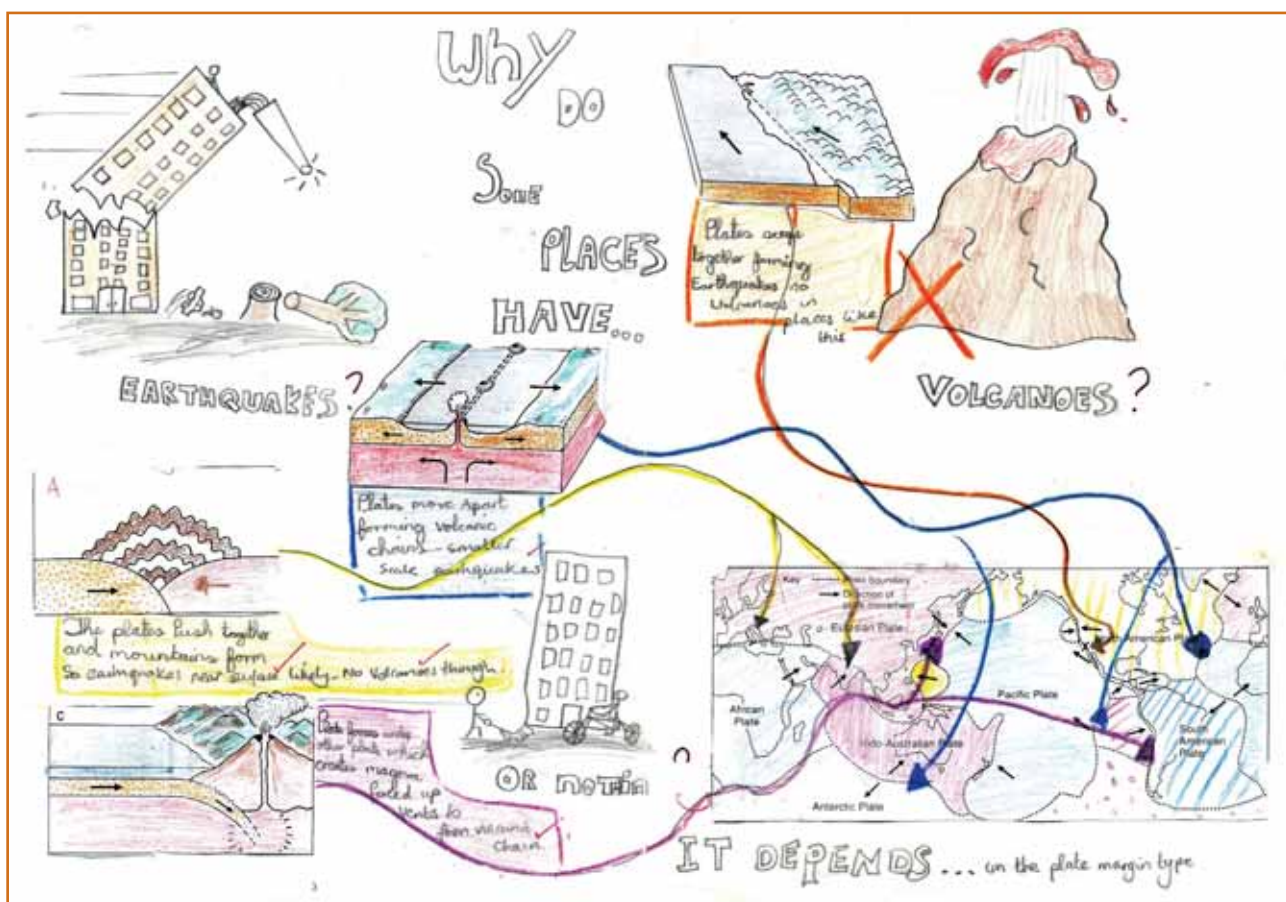 Why
DO
SOME
PLACES
HAVE...
EARTHQUAKES?
VOLCANOES?
together forming
Earthquakes no
Volcanoes in
places like
this
Plates move Apart
forming volcanic
chains - smaller
scale earthquakes
A
The plates Push together
and mountains form
So earthquakes near surface likely. No Volcanoes though.
C
Plate forces under
other plate which
creates magma
vents to
Chain.
OR NOTHIN
?
Key
Plate boundary
Direction of
plate movement
Eurasian Plate
African
Plate
Indo-Australian Plate
Pacific Plate
South
American
Plate
Antarctic Plate
IT DEPENDS... on the plate margin type.